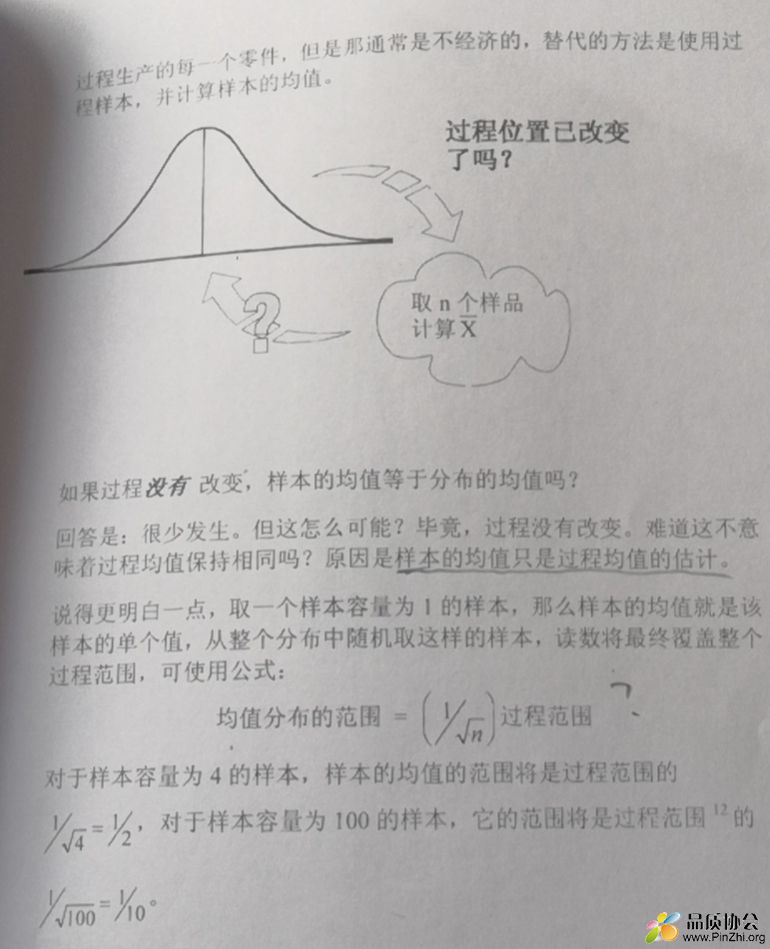 过程生产的每一个零件，但是那通常是不经济的，替代的方法是使用过
程样本，并计算样本的均值。
过程位置已改变
了吗？
取 n 个样品
计算 X̅
?
如果过程没有 改变，样本的均值等于分布的均值吗？
回答是：很少发生。但这怎么可能？毕竟，过程没有改变。难道这不意
味着过程均值保持相同吗？原因是样本的均值只是过程均值的估计。
说得更明白一点，取一个样本容量为 1 的样本，那么样本的均值就是该
样本的单个值，从整个分布中随机取这样的样本，读数将最终覆盖整个
过程范围，可使用公式：
均值分布的范围 = (1/√n) 过程范围 ?
对于样本容量为 4 的样本，样本的均值的范围将是过程范围的
1/√4 = 1/2，对于样本容量为 100 的样本，它的范围将是过程范围¹² 的
1/√100 = 1/10。
品质协会
www.PinZhi.org